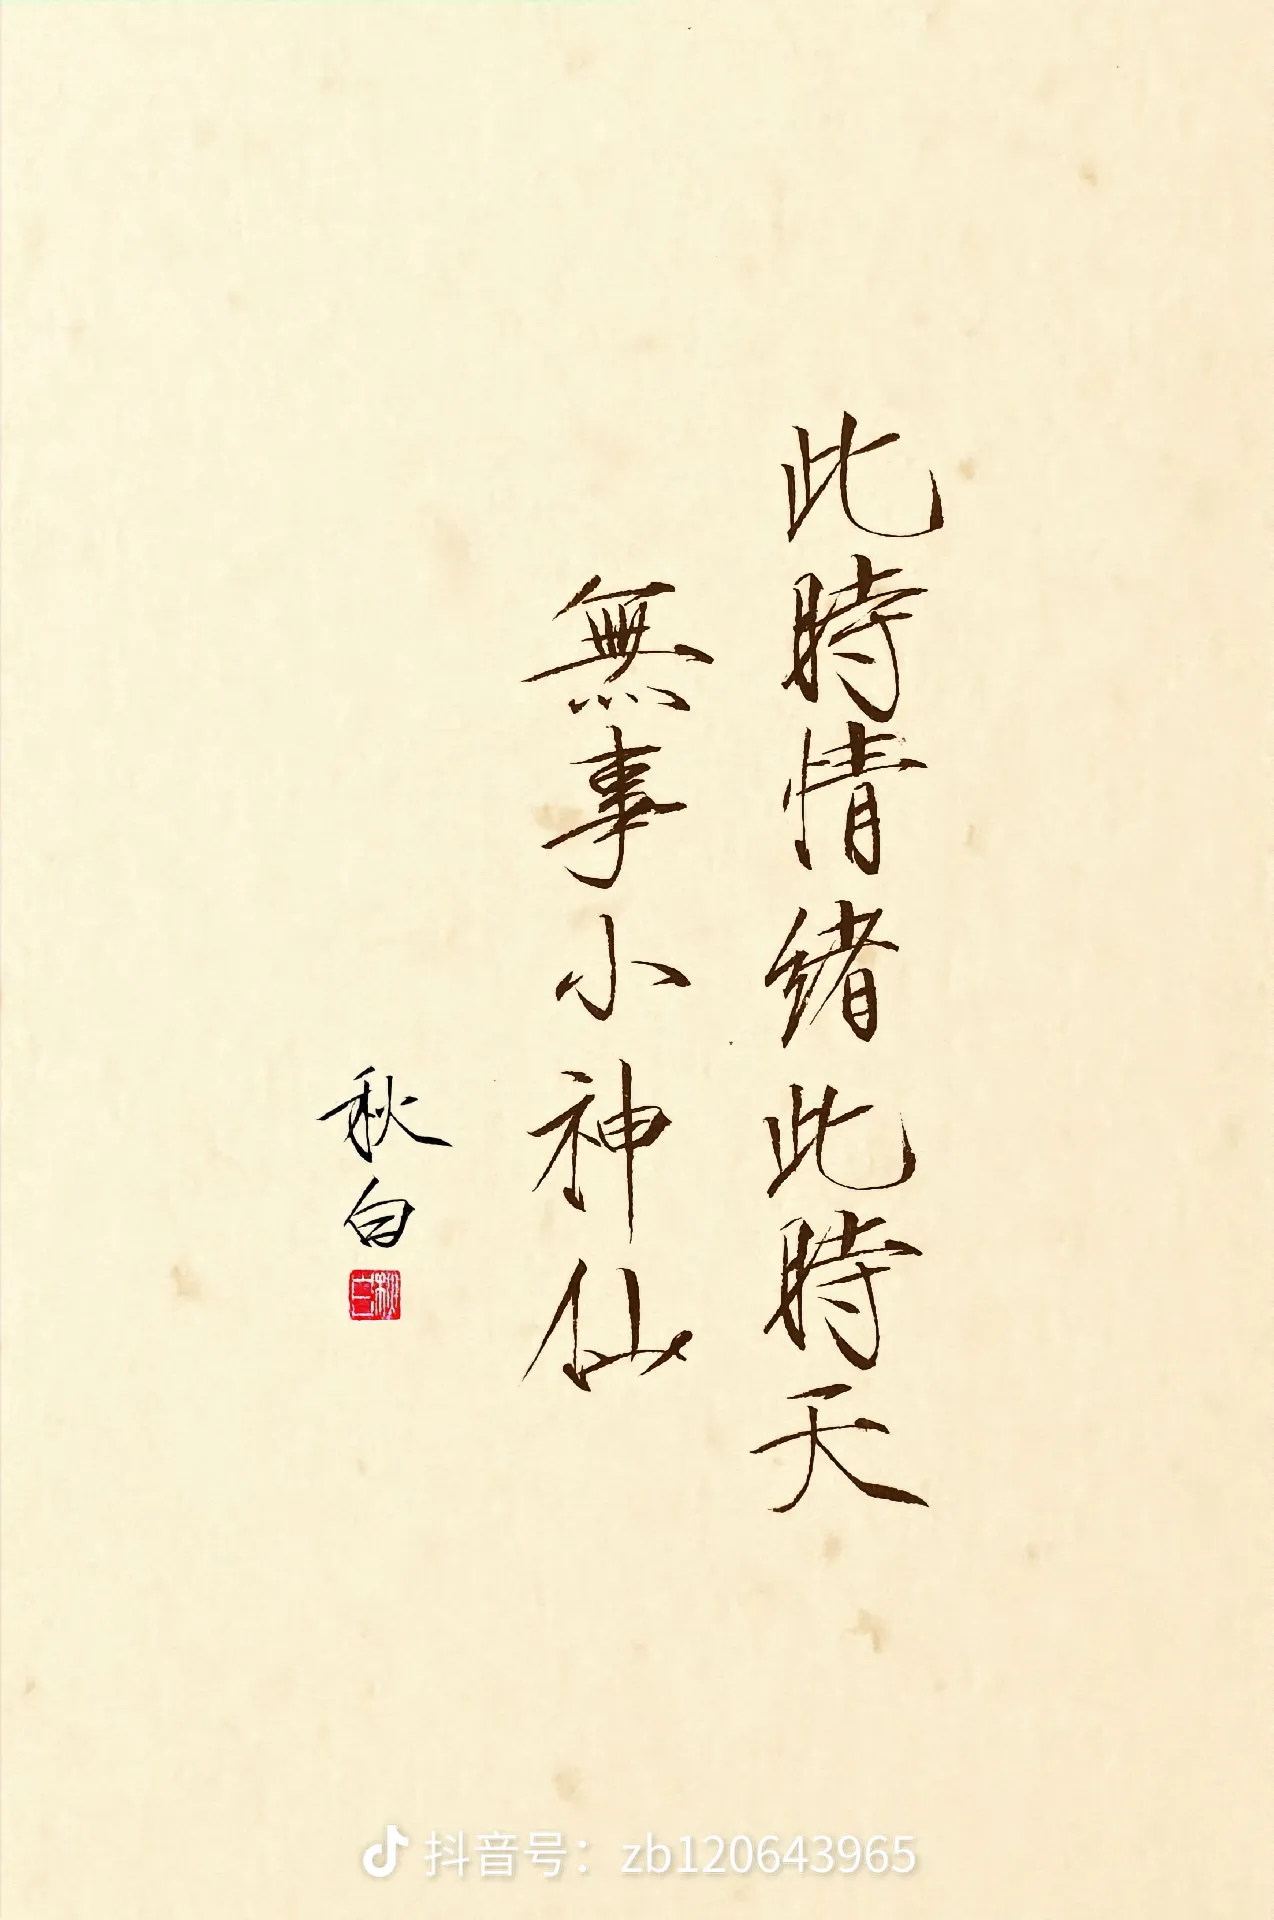 此時情绪此時天
無事小神仙
秋白
秋白
抖音号：zb120643965